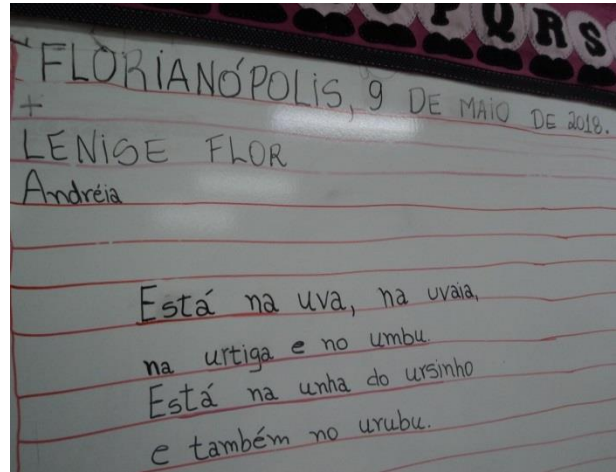 P Q R S
FLORIANÓPOLIS, 9 DE MAIO DE 2018.
+
LENISE FLOR
Andréia
Está na uva, na uvaia,
na urtiga e no umbu.
Está na unha do ursinho
e também no urubu.